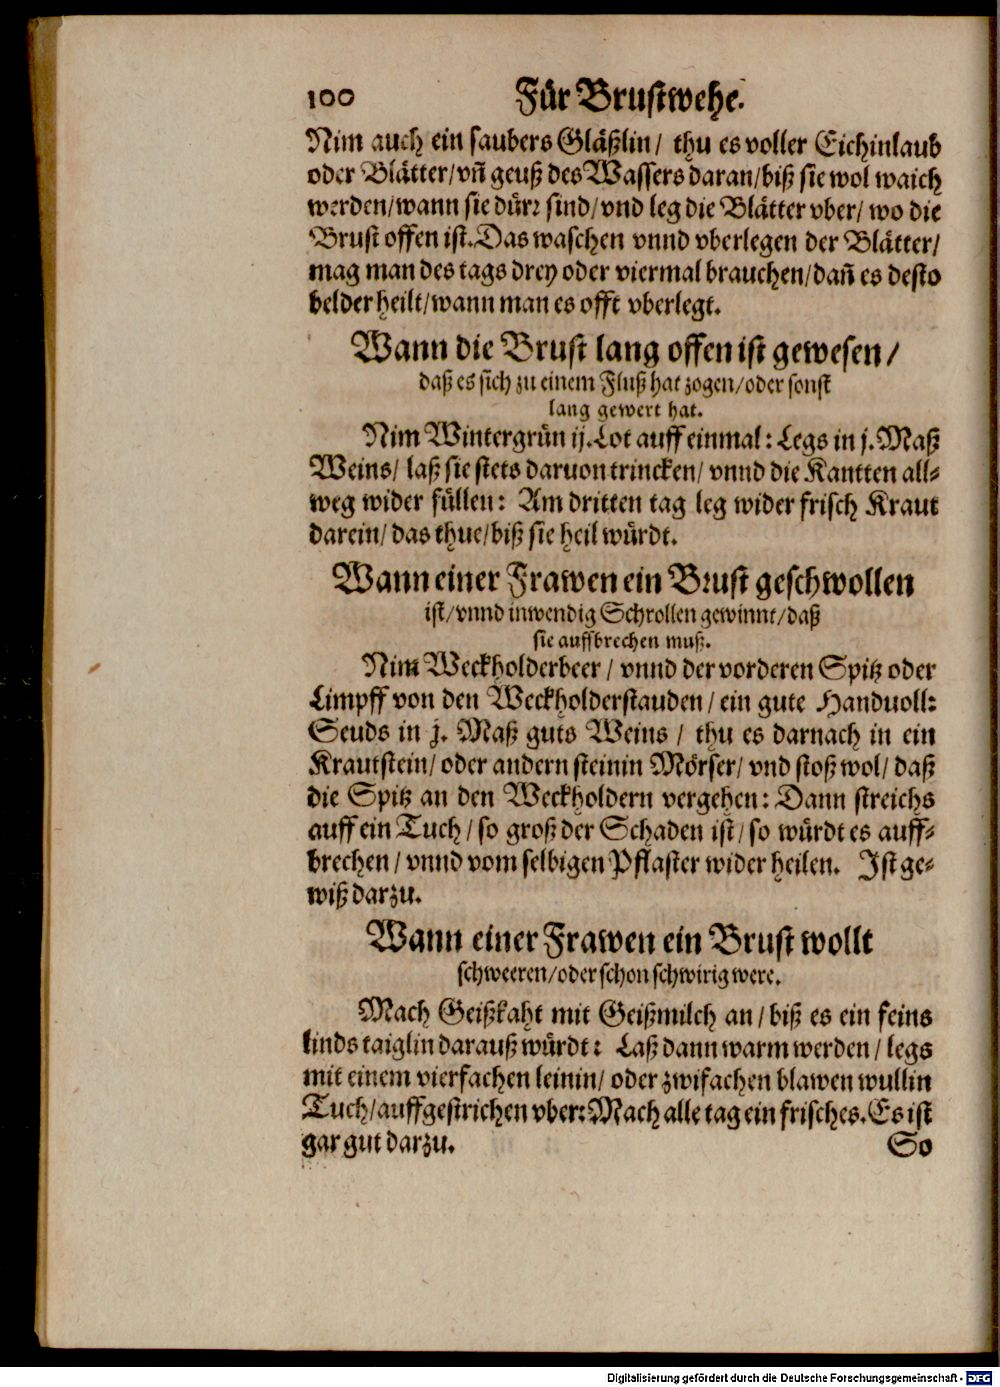 100 Für Brustwehe.
Nim auch ein saubers Gläßlin / thu es voller Eichinlaub
oder Blätter / vñ geuß des Wassers daran / biß sie wol waich
werden / wann sie dürr sind / vnd leg die Blätter vber / wo die
Brust offen ist. Das waschen vnnd vberlegen der Blätter /
mag man des tags drey oder viermal brauchen / dañ es desto
belder heilt / wann man es offt vberlegt.
Wann die Brust lang offen ist gewesen /
daß es sich zu einem Fluß hat zogen / oder sonst
lang gewert hat.
Nim Wintergrün ij. Lot auff einmal : Legs in j. Maß
Weins / laß sie stets daruon trincken / vnnd die Kantten all-
weg wider füllen : Am dritten tag leg wider frisch Kraut
darein / das thue / biß sie heil würdt.
Wann einer Frawen ein Brust geschwollen
ist / vnnd inwendig Schrollen gewinnt / daß
sie auffbrechen muß.
Nim Weckholderbeer / vnnd der vorderen Spitz oder
Limpff von den Weckholderstauden / ein gute Handuoll:
Seuds in j. Maß guts Weins / thu es darnach in ein
Krautstein / oder andern steinin Mörser / vnd stoß wol / daß
die Spitz an den Weckholdern vergehen : Dann streichs
auff ein Tuch / so groß der Schaden ist / so würdt es auff-
brechen / vnnd vom selbigen Pflaster wider heilen. Ist ge-
wiß darzu.
Wann einer Frawen ein Brust wollt
schweeren / oder schon schwirig were.
Mach Geißkaht mit Geißmilch an / biß es ein feins
linds taiglin darauß würdt : Laß dann warm werden / legs
mit einem vierfachen leinin / oder zwifachen blawen wullin
Tuch / auffgestrichen vber: Mach alle tag ein frisches. Es ist
gar gut darzu. So
Digitalisierung gefördert durch die Deutsche Forschungsgemeinschaft - DFG